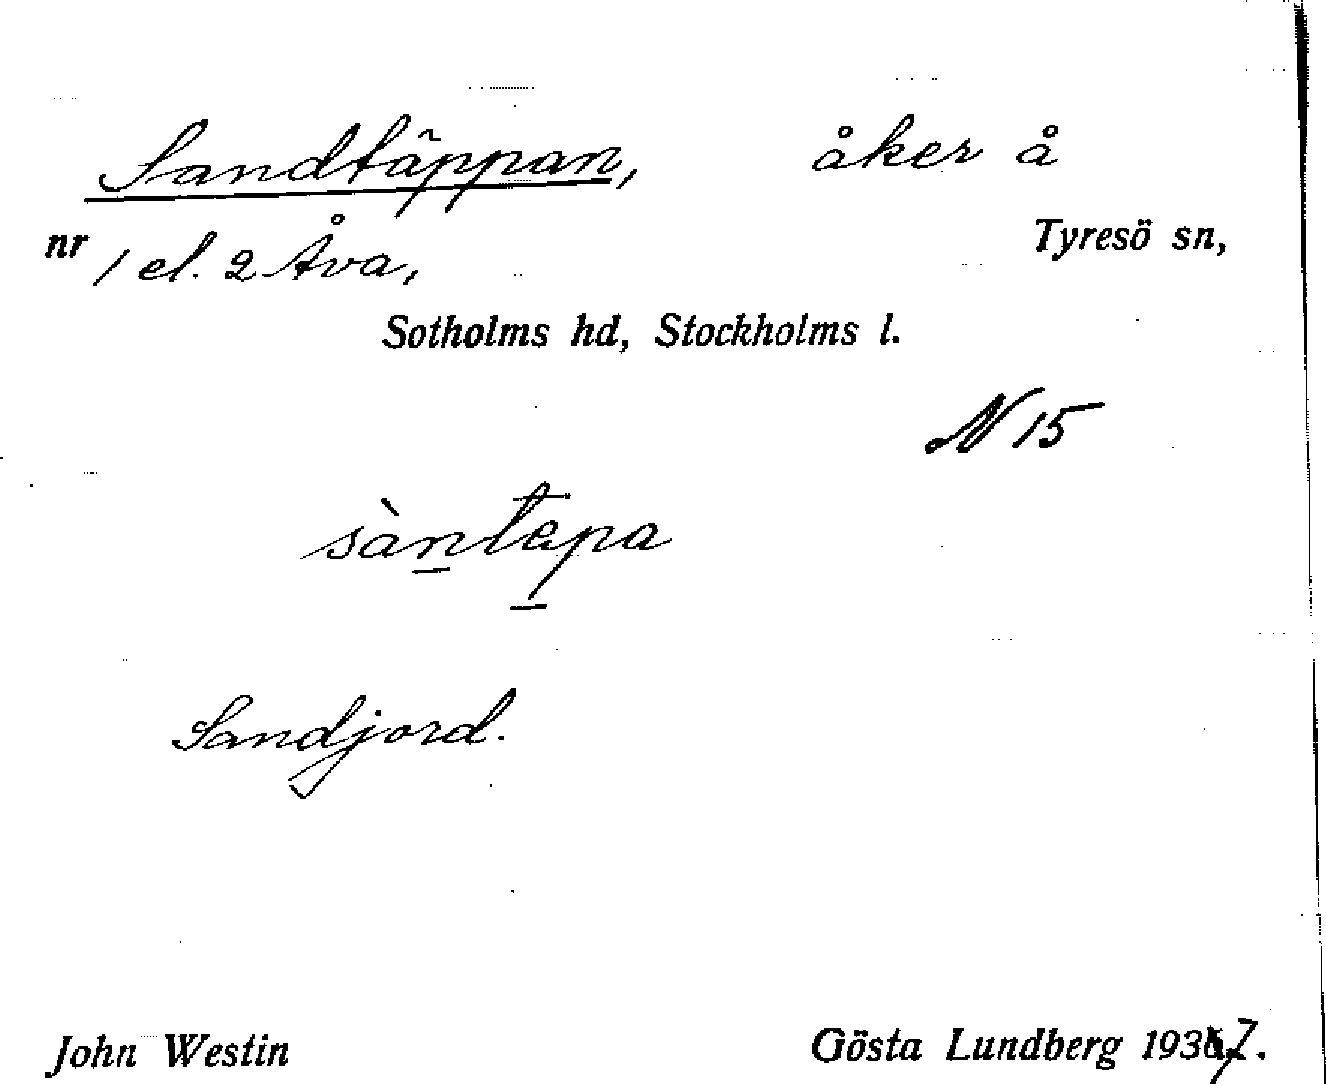 Sandtäppan, åker å
nr 1 el. 2 Åva, Tyresö sn,
Sotholms hd, Stockholms l.
N 15
sàn̲tep̲a
Sandjord.
John Westin Gösta Lundberg 1937.